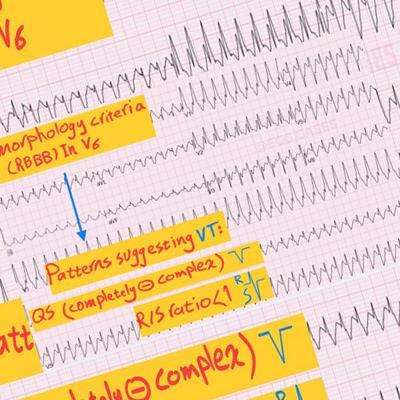 V6
morphology criteria
(RBBB) In V6
Patterns suggesting VT:
QS (completely ⊖ complex)
R/S ratio<1 R
S
att
letely ⊖ complex)
R